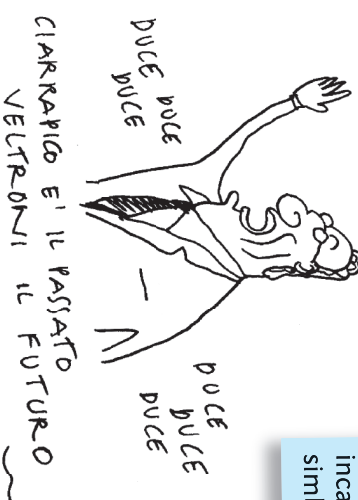 DUCE DUCE
DUCE
DUCE
DUCE
DUCE
CIARRAPICO E' IL PASSATO
VELTRONI IL FUTURO
inca